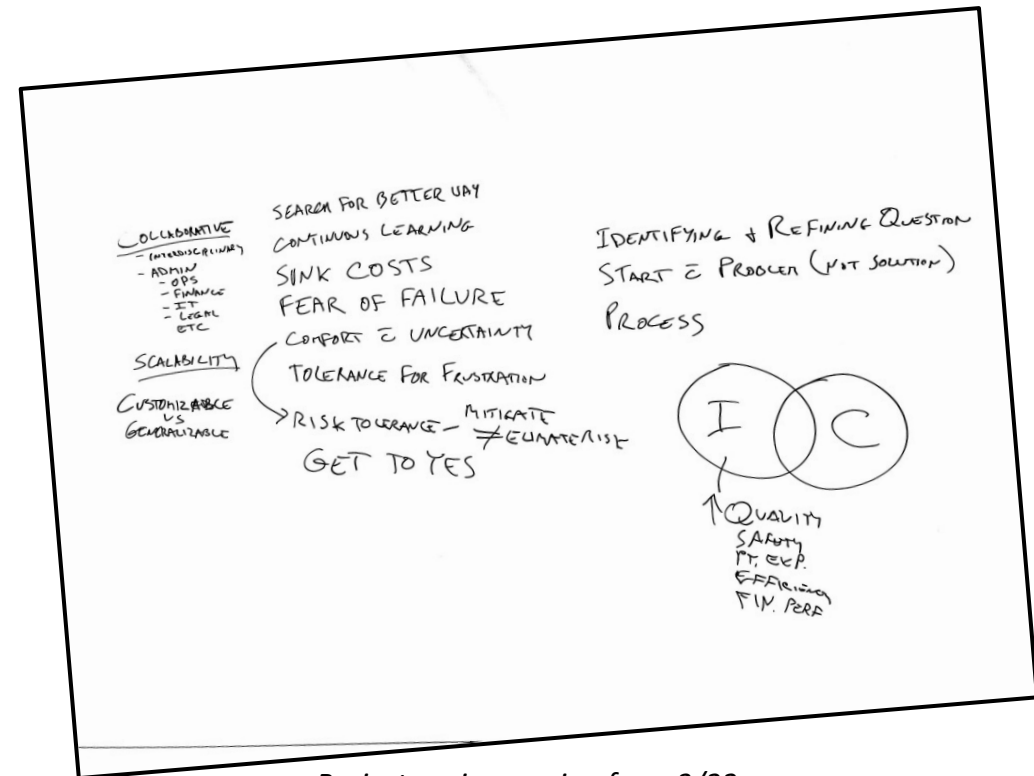 COLLABORATIVE
- INTERDISCIPLINARY
- ADMIN
- OPS
- FINANCE
- IT
- LEGAL
ETC
SCALABILITY
CUSTOMIZABLE
VS
GENERALIZABLE
SEARCH FOR BETTER WAY
CONTINUOUS LEARNING
SINK COSTS
FEAR OF FAILURE
COMFORT c̄ UNCERTAINTY
TOLERANCE FOR FRUSTRATION
RISK TOLERANCE – MITIGATE
≠ ELIMATE RISK
GET TO YES
IDENTIFYING + REFINING QUESTION
START c̄ PROBLEM (NOT SOLUTION)
PROCESS
I C
↑ QUALITY
SAFETY
PT. EXP.
EFFICIENCY
FIN. PERF